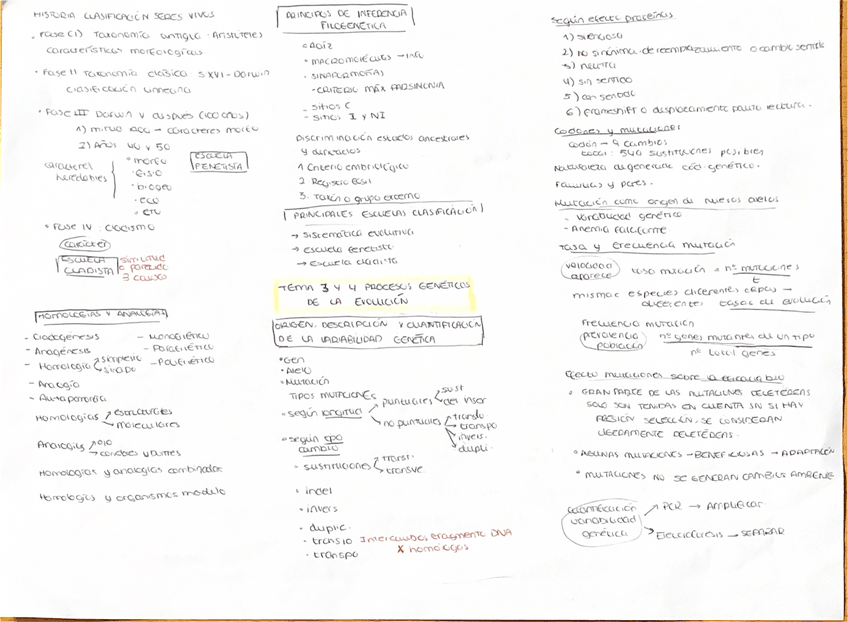 HISTORIA CLASIFICACIÓN SERES VIVOS
· FASE (I) Taxonomía antigua: Aristóteles
características morfológicas
· FASE II Taxonomía clásica: S XVI - Darwin
clasificación linneana
· FASE III DARWIN Y después (100 años)
1) mitad → caracteres morfo
2) Años 40 y 50
caracteres heredables
· morfo
· fisio
· biogeo
· eco
· etc
ESCUELA
FENETISTA
· FASE IV: cladismo
carácter
ESCUELA
CLADISTA
SIMILITUD
o parecido
HOMOLOGÍAS Y ANALOGÍAS
- Cladogénesis
- Anagénesis
- Homología
- Analogía
- Autapomorfia
- Monofilético
- Parafilético
- Polifilético
Homologías → estructurales
→ moleculares
Analogías
Homologías y analogías combinadas
Homologías y organismos modelo
PRINCIPIOS DE INFERENCIA
FILOGENÉTICA
· MACROMOLÉCULAS
· SINAPOMORFIAS
- CRITERIO MÁX PARSIMONIA
- Sitios C
- Sitios I y NI
Discriminación estados ancestrales
y derivados
1 Criterio embriológico
2 Registro fósil
3. Taxón o grupo externo
PRINCIPALES ESCUELAS CLASIFICACIÓN
→ Sistemática evolutiva
→ escuela fenetista
→ escuela cladista
TEMA 3 Y 4 PROCESOS GENÉTICOS
DE LA EVOLUCIÓN
ORIGEN, DESCRIPCIÓN Y CUANTIFICACIÓN
DE LA VARIABILIDAD GENÉTICA
· Gen
· Alelo
· Mutación
TIPOS MUTACIONES
· según longitud
puntuales
sust
del inser
no puntuales
translo
transpo
invers.
dupli.
· según tipo
cambio
· sustituciones
transi.
transve
· indel
· invers
· duplic.
· translo Intercambio fragmento DNA
X homólogos
· transpo
Según efecto proteínas
1) silenciosa
2) no sinónima, de reemplazamiento o cambio sentido
3) neutra
4) sin sentido
5) con sentido
6) frameshift o desplacamiento pauta lectura.
Codones y mutaciones
codón → 9 cambios
total: 549 sustituciones posibles
Naturaleza degenerada cód genético.
Familias y pares.
Mutación como origen de nuevos alelos
- variabilidad genética
- Anemia falciforme
Tasa y frecuencia mutación
velocidad
aparece
tasa mutación = nº mutaciones
t
mismas especies diferentes cepas →
diferentes tasas de evolución
Frecuencia mutación
prevalencia
población
nº genes mutantes de un tipo
nº total genes
Efecto mutaciones sobre la eficacia bio
· GRAN PARTE DE LAS MUTACIONES DELETÉREAS
SOLO SON TENIDAS EN CUENTA SI HAY
PRESIÓN SELECCIÓN, SE CONSIDERAN
LIGERAMENTE DELETÉREAS.
· ALGUNAS MUTACIONES → BENEFICIOSAS → ADAPTACIÓN
· MUTACIONES NO SE GENERAN CAMBIOS AMBIENTE
cuantificación
variabilidad
genética
PCR → Amplificar
Electroforesis → SEPARAR